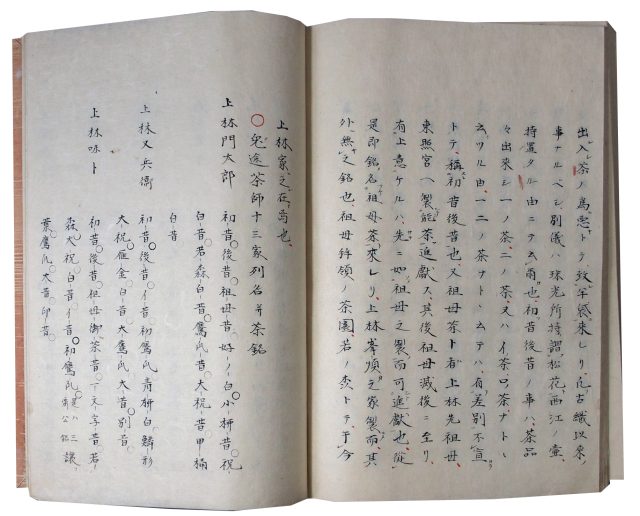 出入茶ノ為トテ來レリ、凡古織以来、
事ナルベシ、別儀ハ珠光所持謂松花西江ノ壷、
持置タル由ニテ云爾也、初昔後昔ノ事ハ、茶品
々出来シ一ノ茶、二ノ茶、又ハイ茶、ロ茶、ナトヽ
云ツル由、一二ノ茶ナトヽ云テハ、有差別不宣
トテ、稱初昔後昔也、又祖母茶ト者上林先祖母
東照宮ヘ製能茶進獻ス、其後祖母滅後ニ至リ、
有上意ケルハ、先ニ如祖母之製而可進獻也、従
是即銘名祖母茶來レリ、上林峯順之家製而、其
外無之銘也、祖母拝領ノ茶園、若ノ森トテ于今
上林家之在焉也、
○菟途茶師十三家列名并茶銘
上林門太郎　初昔○後昔○祖母昔　好ノ白　小柳昔○祝
白○昔　若森　白昔○鷹爪昔　大祝昔　甲桶
白昔
上林又兵衛　初昔○後昔○イ昔　初鷹爪　青柳　白　鱗形
大祝○雁金○白○昔　大鷹爪　大昔○別昔○
上林味卜　初昔○後昔○祖母昔　御茶昔○下文字昔　若
森　大祝○白昔○イ昔○初鷹爪 是ハ三公銘ニ譲
葉　鷹爪○大昔○印昔○